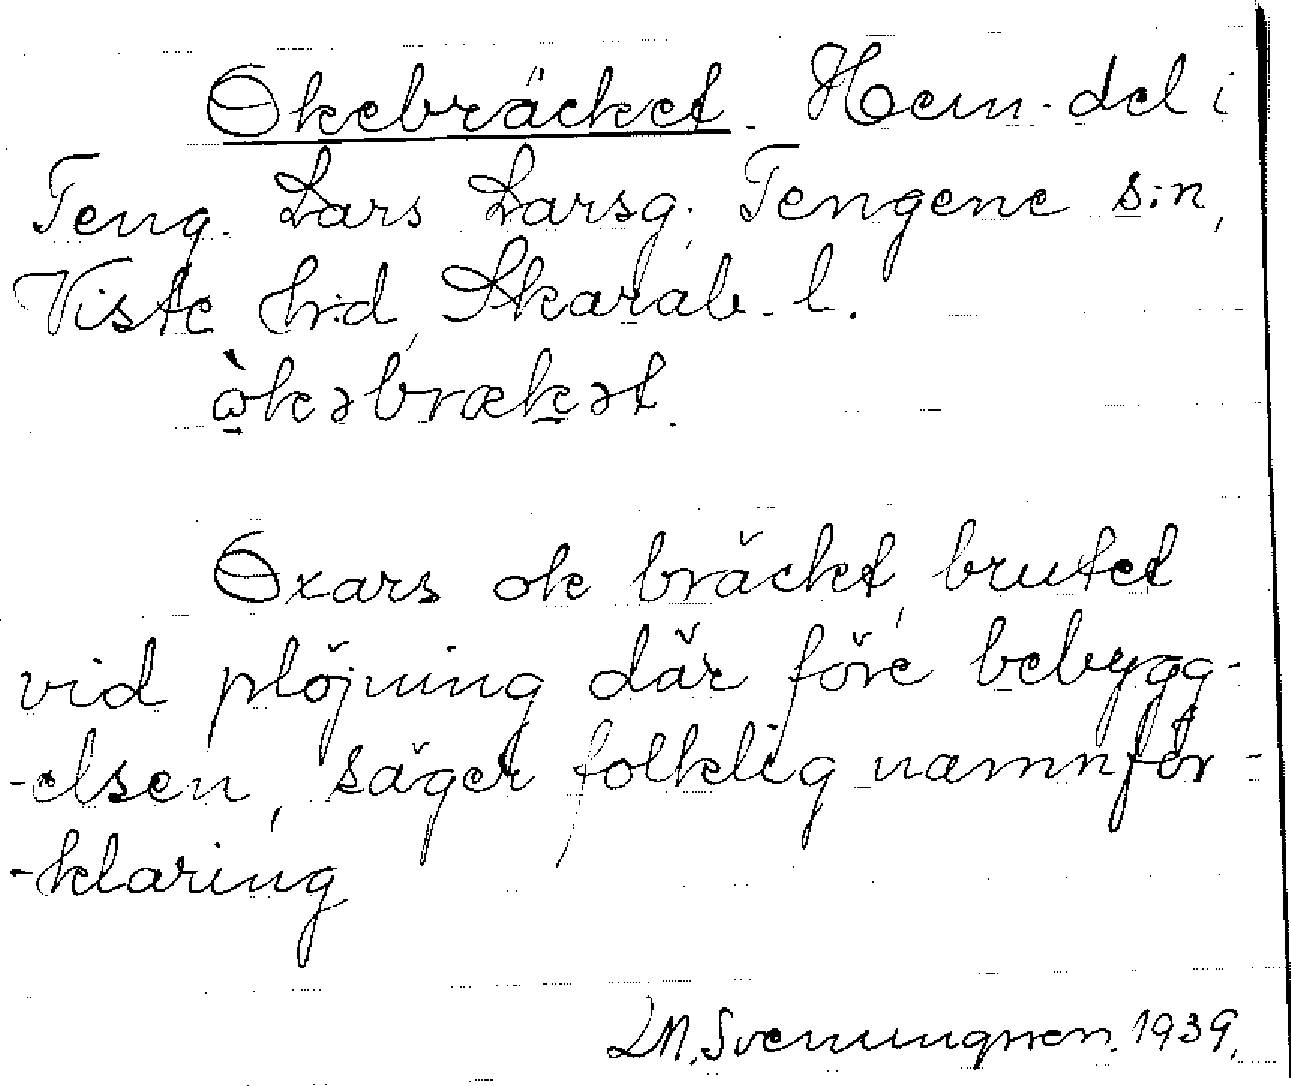 Okebräcket. Hem-del i
Teng. Lars Larsg. Tengene s:n,
Viste h:d, Skarab. l.
ὼ̣kəbrækət.
Oxars ok bräckt, brutet
vid plöjning där före bebygg-
-elsen, säger folklig namnför-
-klaring
L M. Svenungsson. 1939.